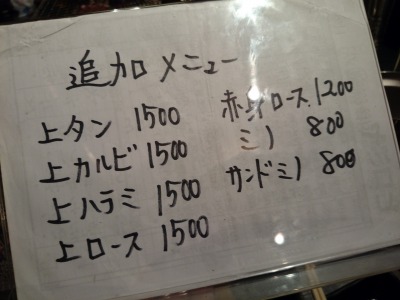 追加メニュー
上タン 1500
上カルビ 1500
上ハラミ 1500
上ロース 1500
赤身ロース 1200
ミノ 800
サンドミノ 800